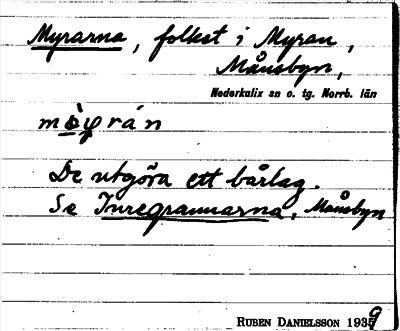 Myrarna, folket i Myran,
Månsbyn,
Nederkalix sn o. tg. Norrb. län
De utgöra ett bårlag.
Se Inregrannarna, Månsbyn
RUBEN DANIELSSON 1939